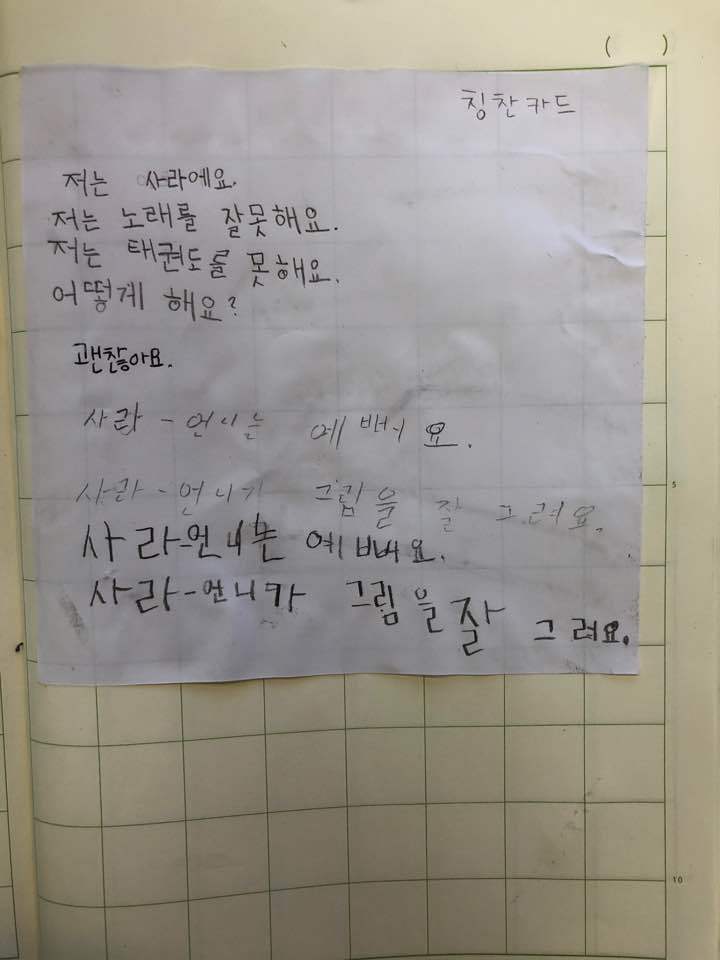 ( )
칭찬카드
저는 사라에요.
저는 노래를 잘못해요.
저는 태권도를 못해요.
어떻게 해요?
괜찮아요.
사라-언니는 예배요.
사라-언니가 그림을 잘 그려요.
사라-언니는 예빼요.
사라-언니가 그림을 잘 그려요.
5
10